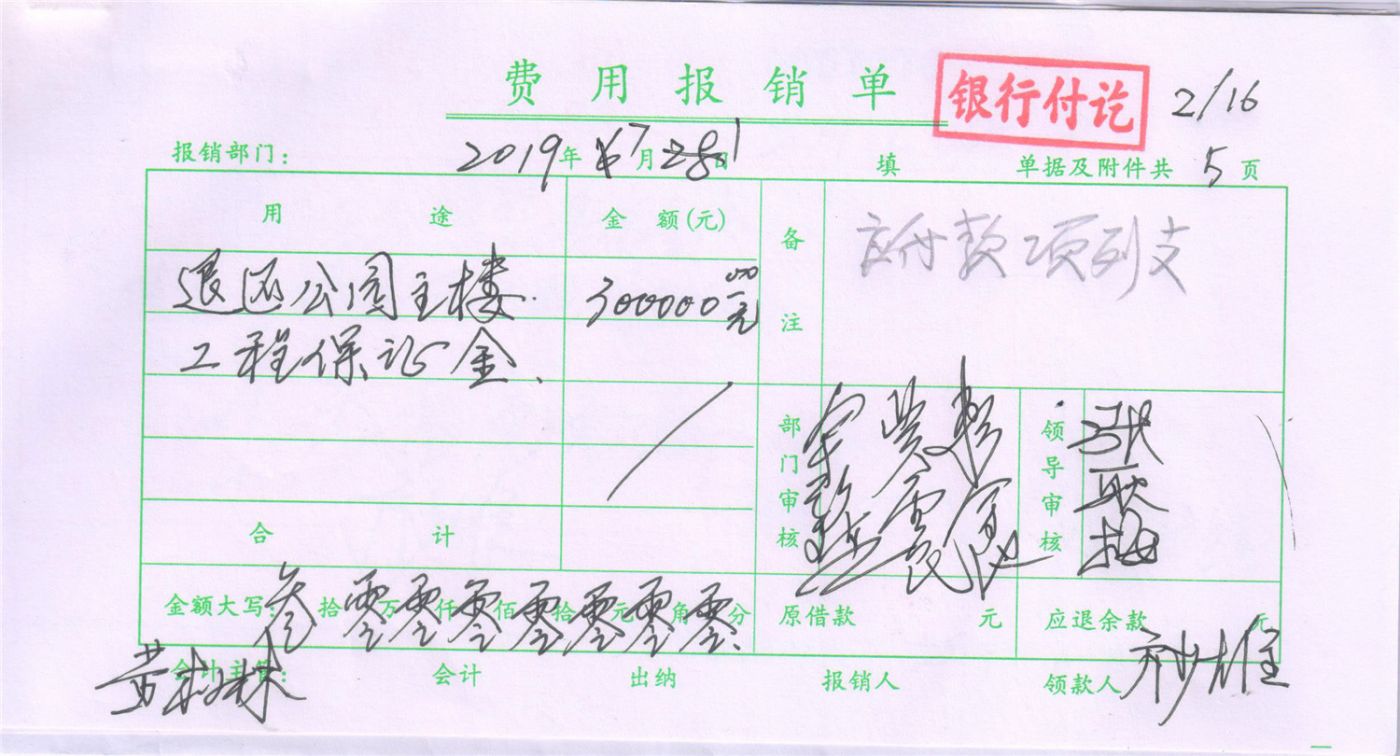 费用报销单 银行付讫 2/16
报销部门: 2019年7月1日 填 单据及附件共 5 页
用途 金额(元) 备注 应付款项列支
退还公园主楼 300000元
工程保证金
部门审核 领导审核
合计
金额大写: 叁拾零万零仟零佰零拾零元零角零分 原借款 元 应退余款 元
会计主管: 会计 出纳 报销人 领款人